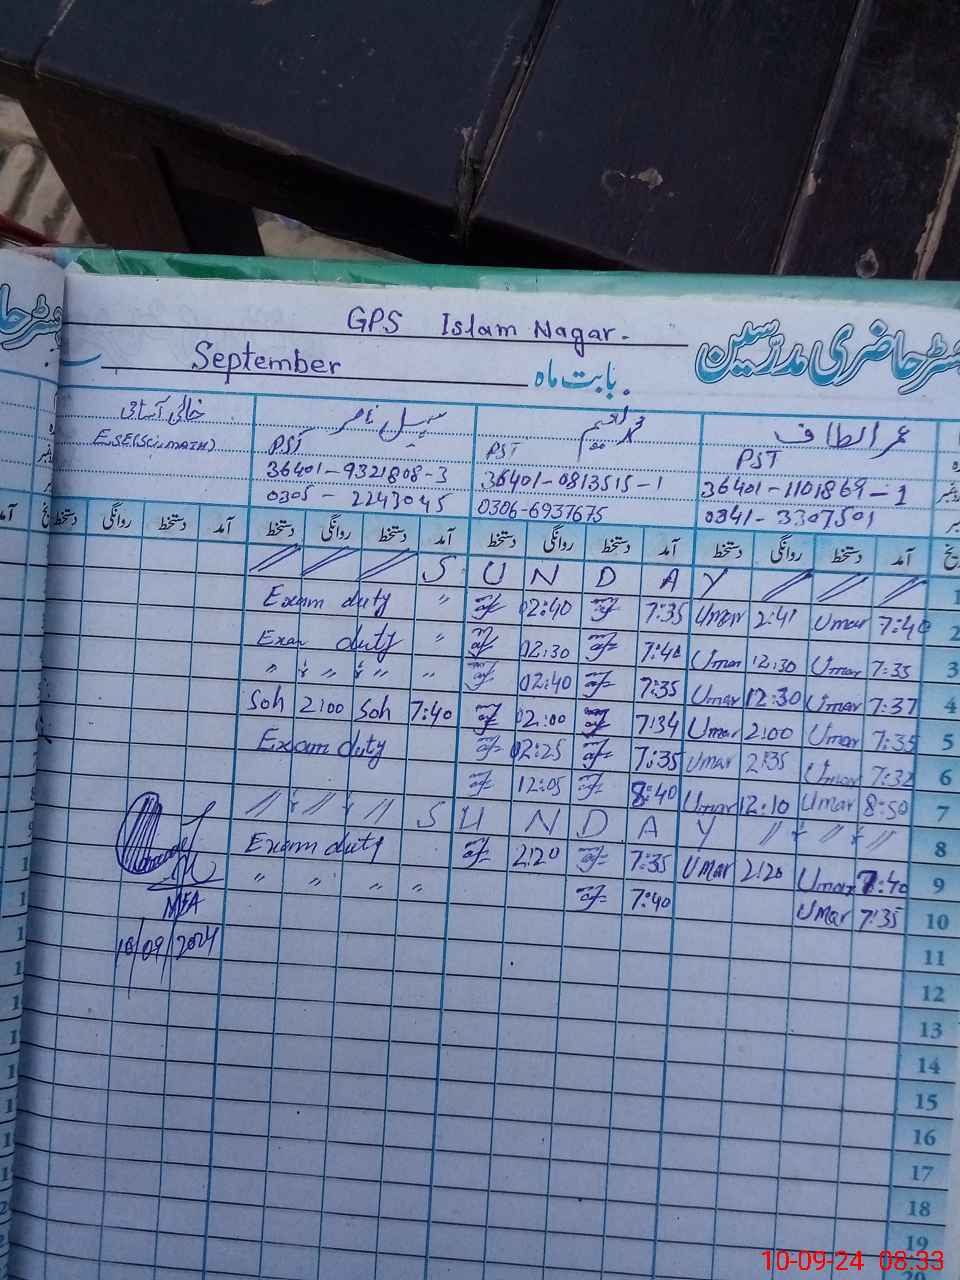 GPS Islam Nagar.
رجسٹر حاضری مدرسین
September بابت ماہ
عمر الطاف سہیل ناصر خالی آسامی
PST PST PST E.S.E(Sci.MATH)
36401-1101869-1 36401-0813515-1 36401-9321808-3
0341-3307501 0306-6937675 0305-2243045
آمد دستخط روانگی دستخط آمد دستخط روانگی دستخط آمد دستخط روانگی دستخط آمد دستخط روانگی دستخط
1 S U N D A Y
2 7:40 Umar 2:41 Umar 7:35 02:40 " Exam duty
3 7:35 Umar 12:30 Umar 7:40 02:30 " Exam duty
4 7:37 Umar 12:30 Umar 7:35 02:40 " " " " "
5 7:35 Umar 2:00 Umar 7:34 02:00 7:40 Soh 2:00 Soh
6 7:32 Umar 2:35 Umar 7:35 02:25 Exam duty
7 8:50 Umar 12:10 Umar 8:40 12:05
8 S U N D A Y
9 7:40 Umar 2:20 Umar 7:35 2:20 Exam duty
10 7:35 Umar 7:40 " " " "
MEA
10/09/2024
11
12
13
14
15
16
17
18
19
10-09-24 08:33